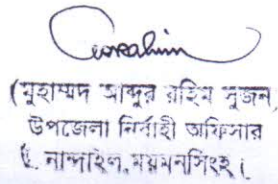 (মুহাম্মদ আব্দুর রহিম সুজন)
উপজেলা নির্বাহী অফিসার
নান্দাইল, ময়মনসিংহ।